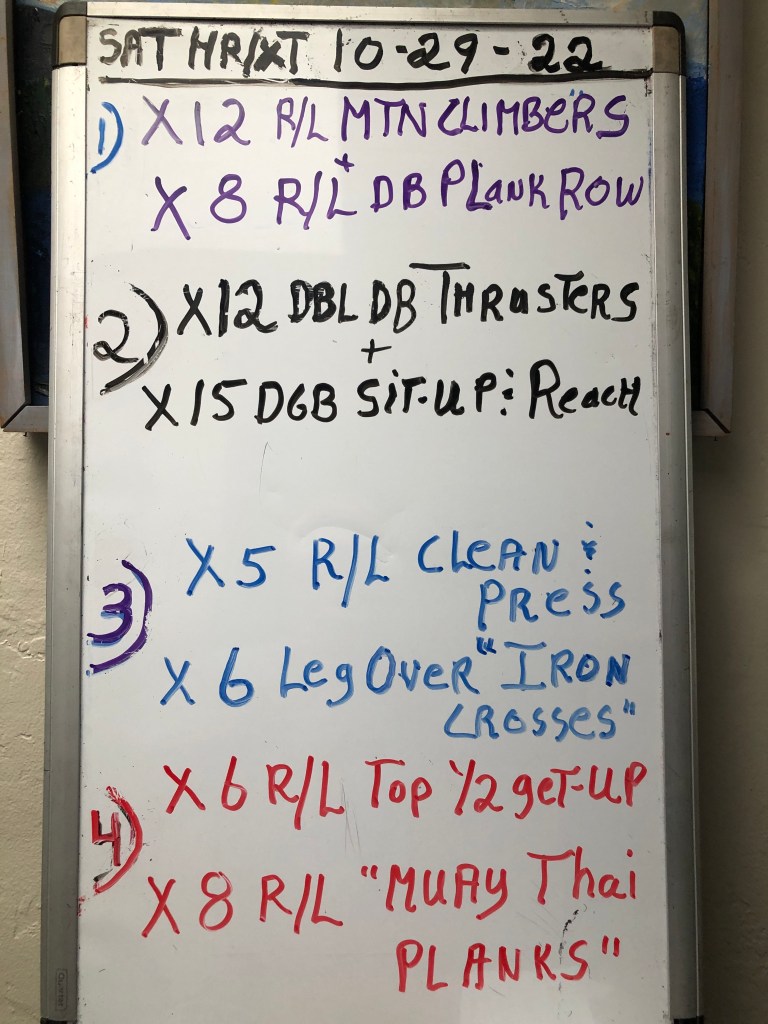 SAT HR/XT 10-29-22
1) X12 R/L MTN CLIMBERS
+
X 8 R/L DB PLANK ROW
2) X12 DBL DB THRUSTERS
+
X15 DGB SIT-UP & REACH
3) X5 R/L CLEAN &
PRESS
X 6 Leg Over "IRON
CROSSES"
4) X 6 R/L Top 1/2 geT-UP
X 8 R/L "MUAY Thai
PLANKS"
Quartet